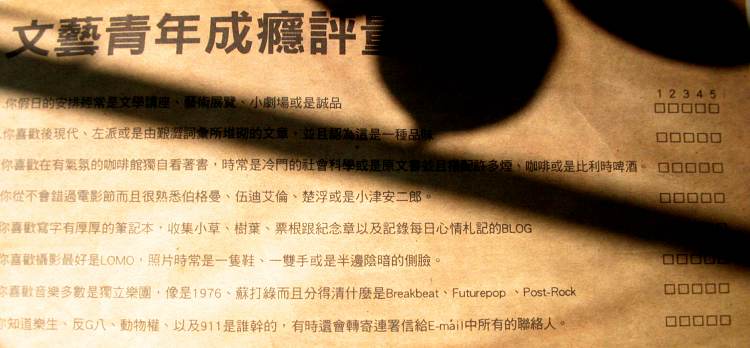 文藝青年成癮評量
1 2 3 4 5
.你假日的安排經常是文學講座、藝術展覽、小劇場或是誠品 □□□□□
.你喜歡後現代、左派或是由艱澀詞彙所堆砌的文章，並且認為這是一種品味 □□□□□
你喜歡在有氣氛的咖啡館獨自看著書，時常是冷門的社會科學或是原文書並且搭配許多煙、咖啡或是比利時啤酒。 □□□□□
你從不會錯過電影節而且很熟悉伯格曼、伍迪艾倫、楚浮或是小津安二郎。 □□□□□
你喜歡寫字有厚厚的筆記本，收集小草、樹葉、票根跟紀念章以及記錄每日心情札記的BLOG □□□□□
你喜歡攝影最好是LOMO，照片時常是一隻鞋、一雙手或是半邊陰暗的側臉。 □□□□□
你喜歡音樂多數是獨立樂團，像是1976、蘇打綠而且分得清什麼是Breakbeat、Futurepop 、Post-Rock □□□□□
你知道樂生、反G八、動物權、以及911是誰幹的，有時還會轉寄連署信給E-mail中所有的聯絡人。 □□□□□